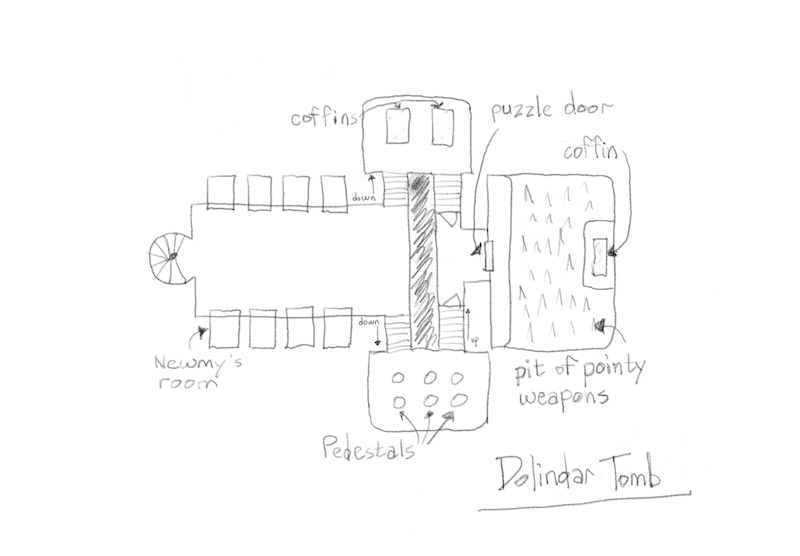 puzzle door
coffins
coffin
down
down
up
Newmy's
room
pit of pointy
weapons
Pedestals
Dolindar Tomb